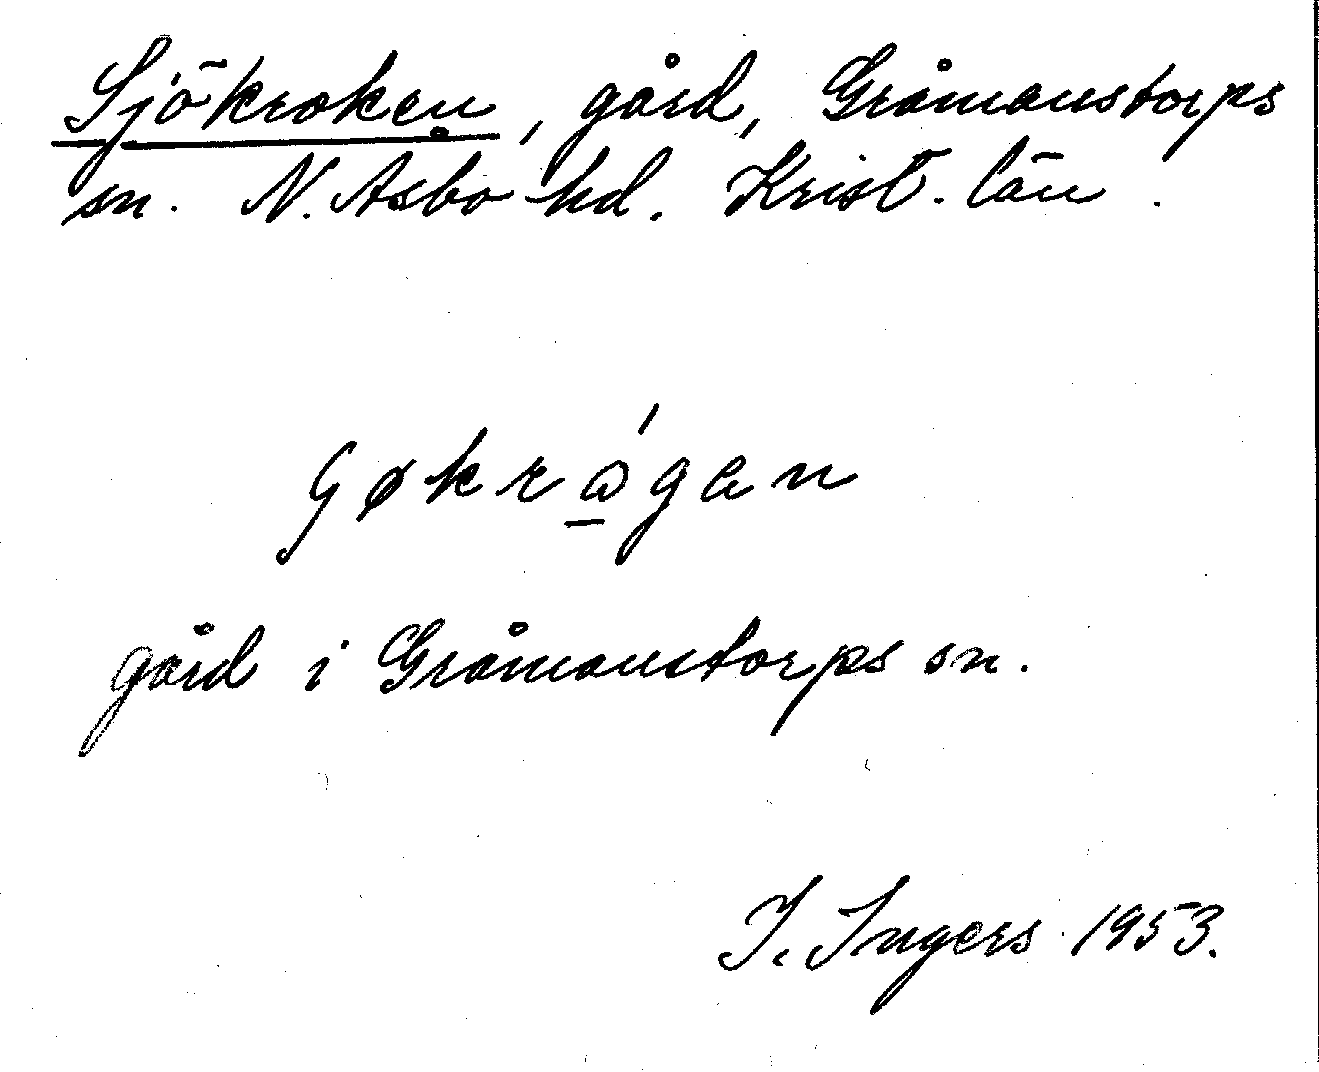 Sjökroken, gård, Gråmanstorps
sn. N. Åsbo hd. Krist. län.
ɧøkrǫ́gen
gård i Gråmanstorps sn.
I. Ingers 1953.